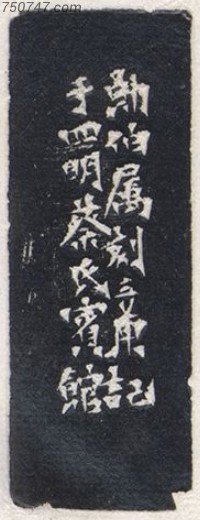 750747.com
勛伯属刻三庚記
于四明蔡氏賓館